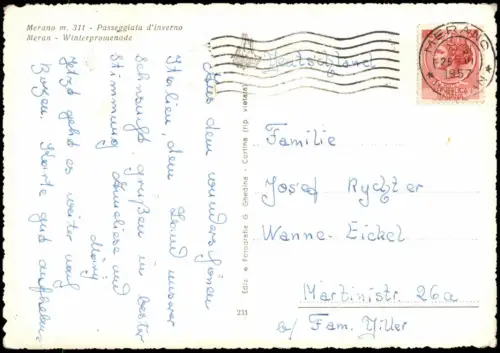 Merano m. 311 - Passeggiata d'inverno
Meran - Winterpromenade
Aus dem wunderschönen
Italien, dem Land unserer
Sehnsucht, grüßen in bester
Stimmung Anneliese und
Jetzt geht es weiter nach
Bozen. Karte gut aufheben
Ediz. e Fotografia G. Ghedina - Cortina (rip. vietata)
231
Deutschland
MERANO
1957
Familie
Josef Rychter
Wanne-Eickel
Martinistr. 26a
b/ Fam. Yiller